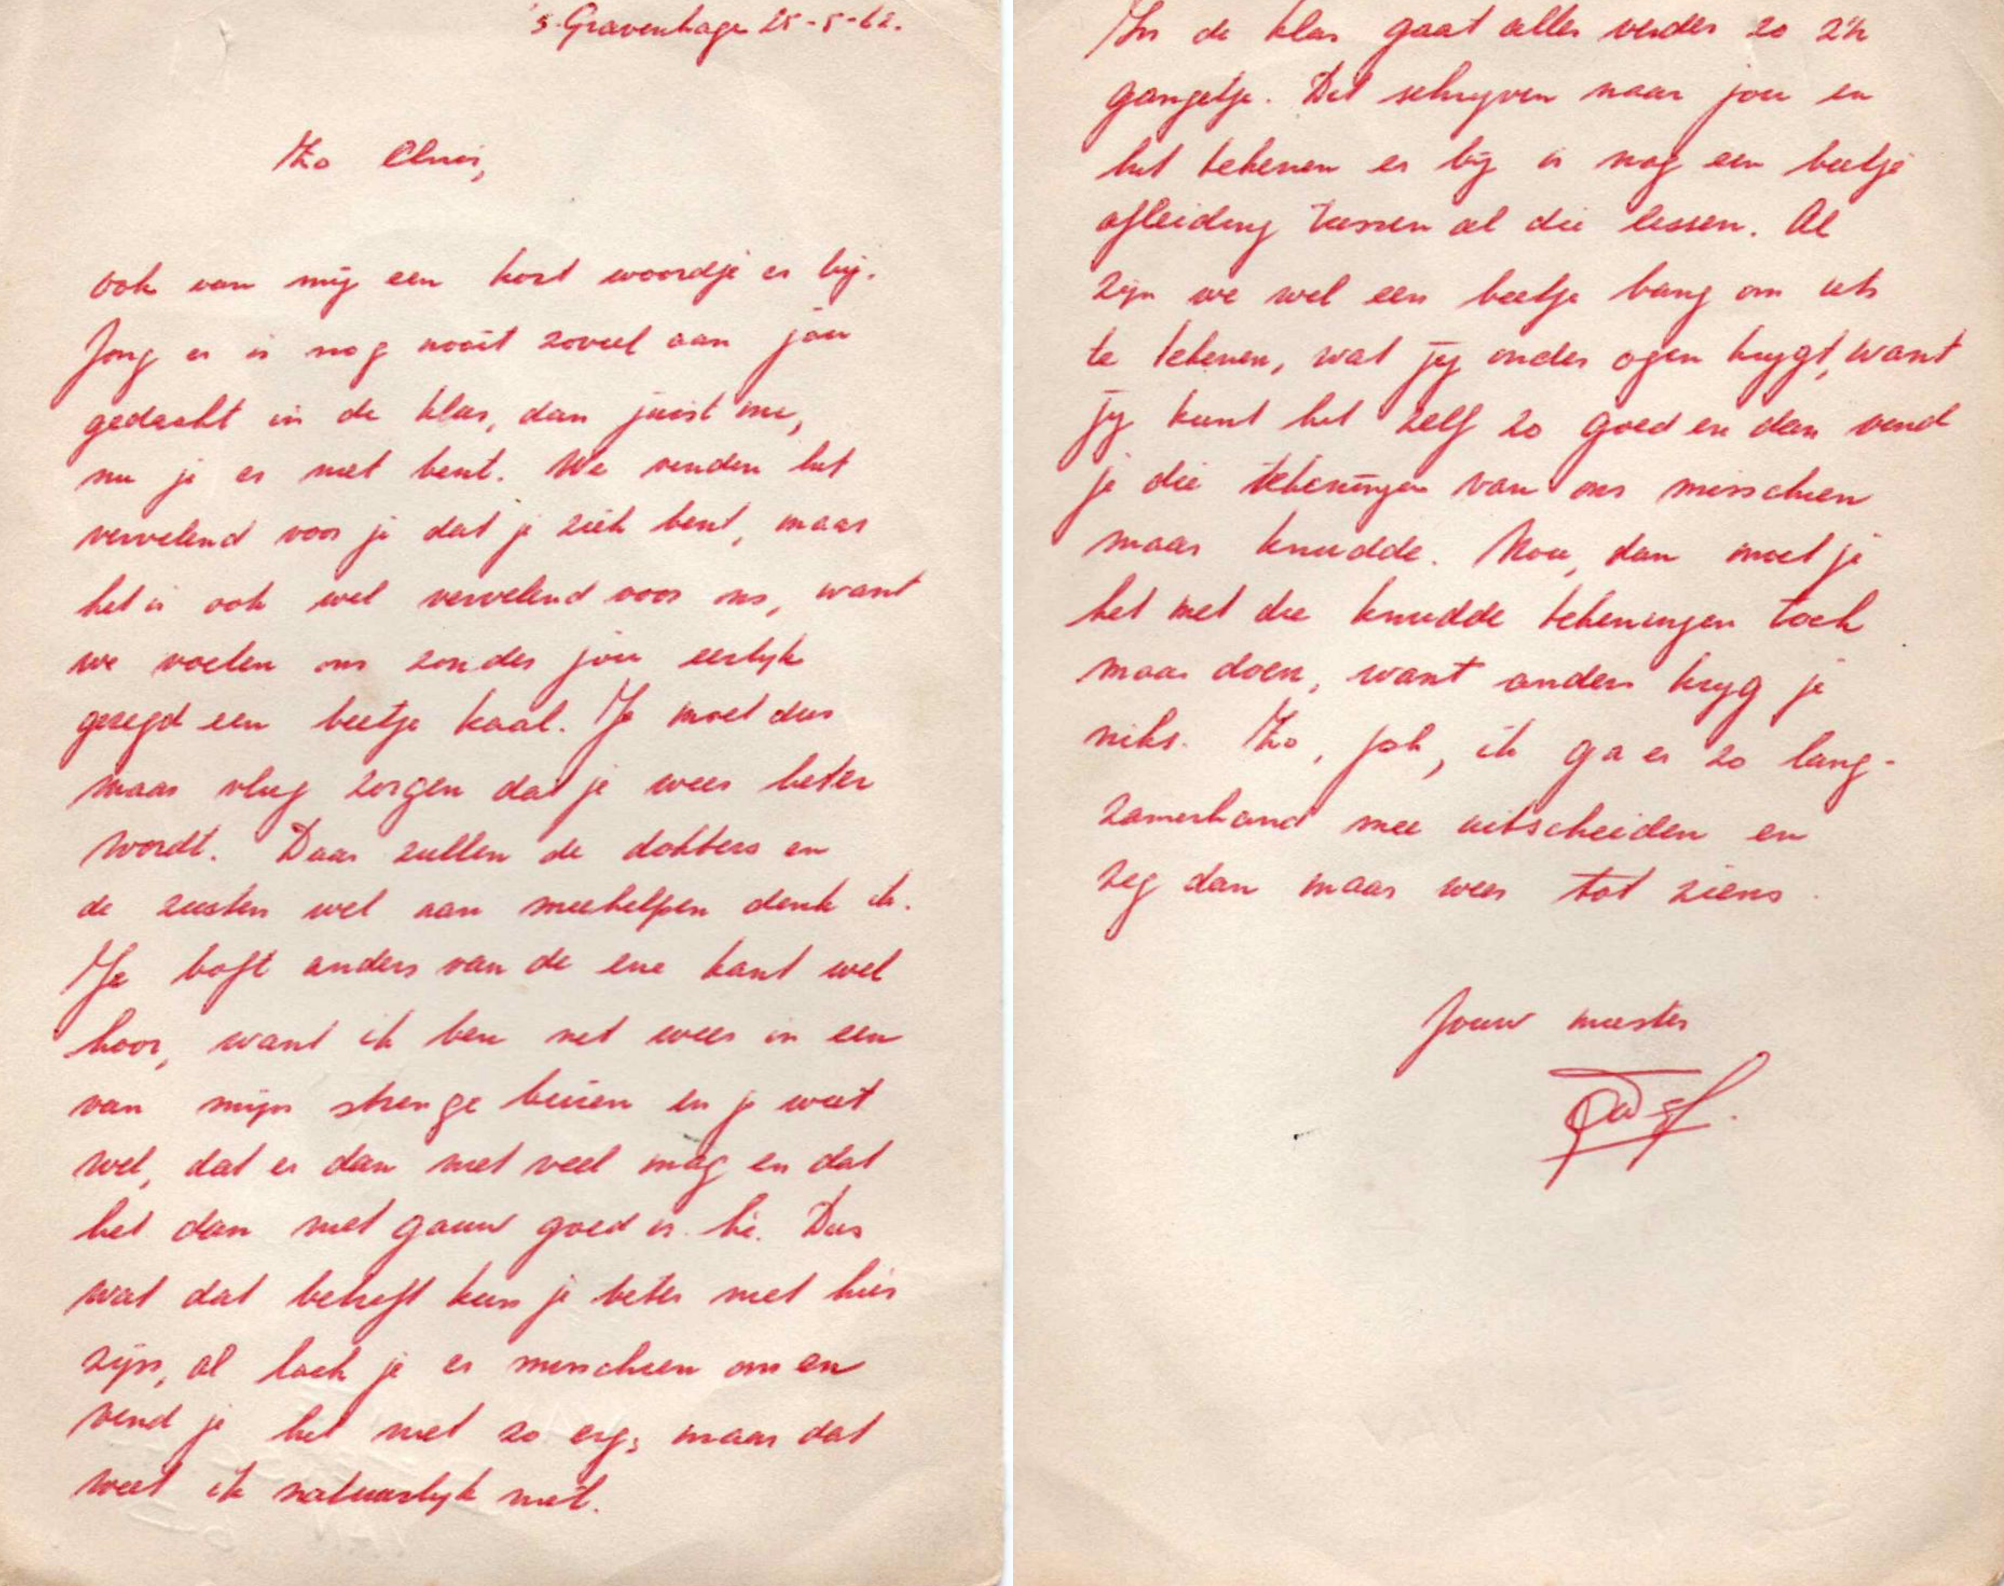 's-Gravenhage 25-5-62.
Zo Chris,
ook van mij een kort woordje er bij.
Jong er is nog nooit zoveel aan jou
gedacht in de klas, dan juist nu,
nu je er niet bent. We vinden het
vervelend voor je dat je ziek bent, maar
het is ook wel vervelend voor ons, want
we voelen ons zonder jou eerlijk
gezegd een beetje kaal. Je moet dus
maar vlug zorgen dat je weer beter
wordt. Daar zullen de dokters en
de zusters wel aan meehelpen denk ik.
Je boft anders van de ene kant wel
hoor, want ik ben net weer in een
van mijn strenge buien en je weet
wel, dat er dan niet veel mag en dat
het dan niet gauw goed is hè. Dus
wat dat betreft kun je beter niet hier
zijn, al lach je er misschien om en
vind je het niet zo erg, maar dat
weet ik natuurlijk niet.
In de klas gaat alles verder zo z'n
gangetje. Dit schrijven naar jou en
het tekenen er bij is nog een beetje
afleiding tussen al die lessen. Al
zijn we wel een beetje bang om iets
te tekenen, wat jij onder ogen krijgt, want
jij kunt het zelf zo goed en dan vind
je die tekeningen van ons misschien
maar knudde. Nou, dan moet je
het met die knudde tekeningen toch
maar doen, want anders krijg je
niks. Zo, joh, ik ga er zo lang-
zamerhand mee uitscheiden en
zeg dan maar weer tot ziens.
Jouw meester